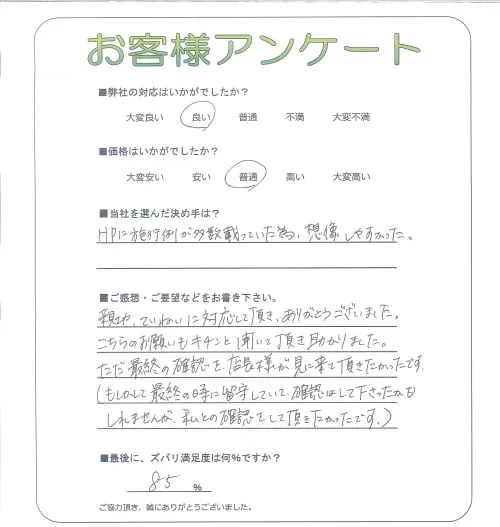 お客様アンケート
■弊社の対応はいかがでしたか？
大変良い 良い 普通 不満 大変不満
■価格はいかがでしたか？
大変安い 安い 普通 高い 大変高い
■当社を選んだ決め手は？
HPに施行例が多数載っていた為、想像しやすかった。
■ご感想・ご要望などをお書き下さい。
親切、ていねいに対応して頂き、ありがとうございました。
こちらのお願いもキチンと聞いて頂き助かりました。
ただ最終の確認を店長様が見に来て頂きたかったです
(もしかして最終の時に留守していて、確認はして下さったかも
しれませんが、私との確認をして頂きたかったです。)
■最後に、ズバリ満足度は何％ですか？
85 ％
ご協力頂き、誠にありがとうございました。